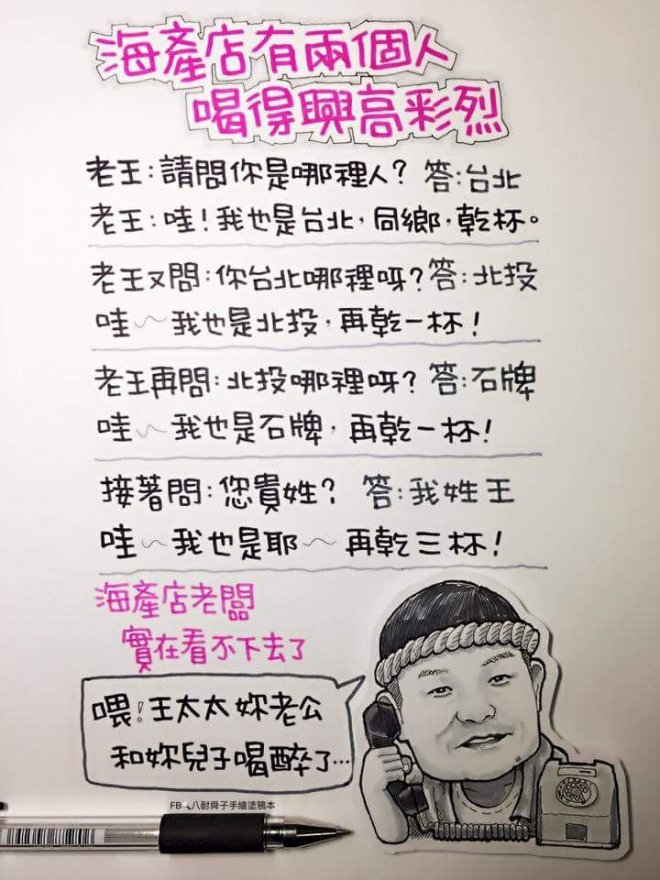 海產店有兩個人
喝得興高彩烈
老王：請問你是哪裡人？ 答：台北
老王：哇！我也是台北，同鄉，乾杯。
老王又問：你台北哪裡呀？答：北投
哇～我也是北投，再乾一杯！
老王再問：北投哪裡呀？ 答：石牌
哇～我也是石牌，再乾一杯！
接著問：您貴姓？ 答：我姓王
哇～我也是耶～再乾三杯！
海產店老闆
實在看不下去了
喂！王太太妳老公
和妳兒子喝醉了…
FB 八耐舜子手繪塗鴉本